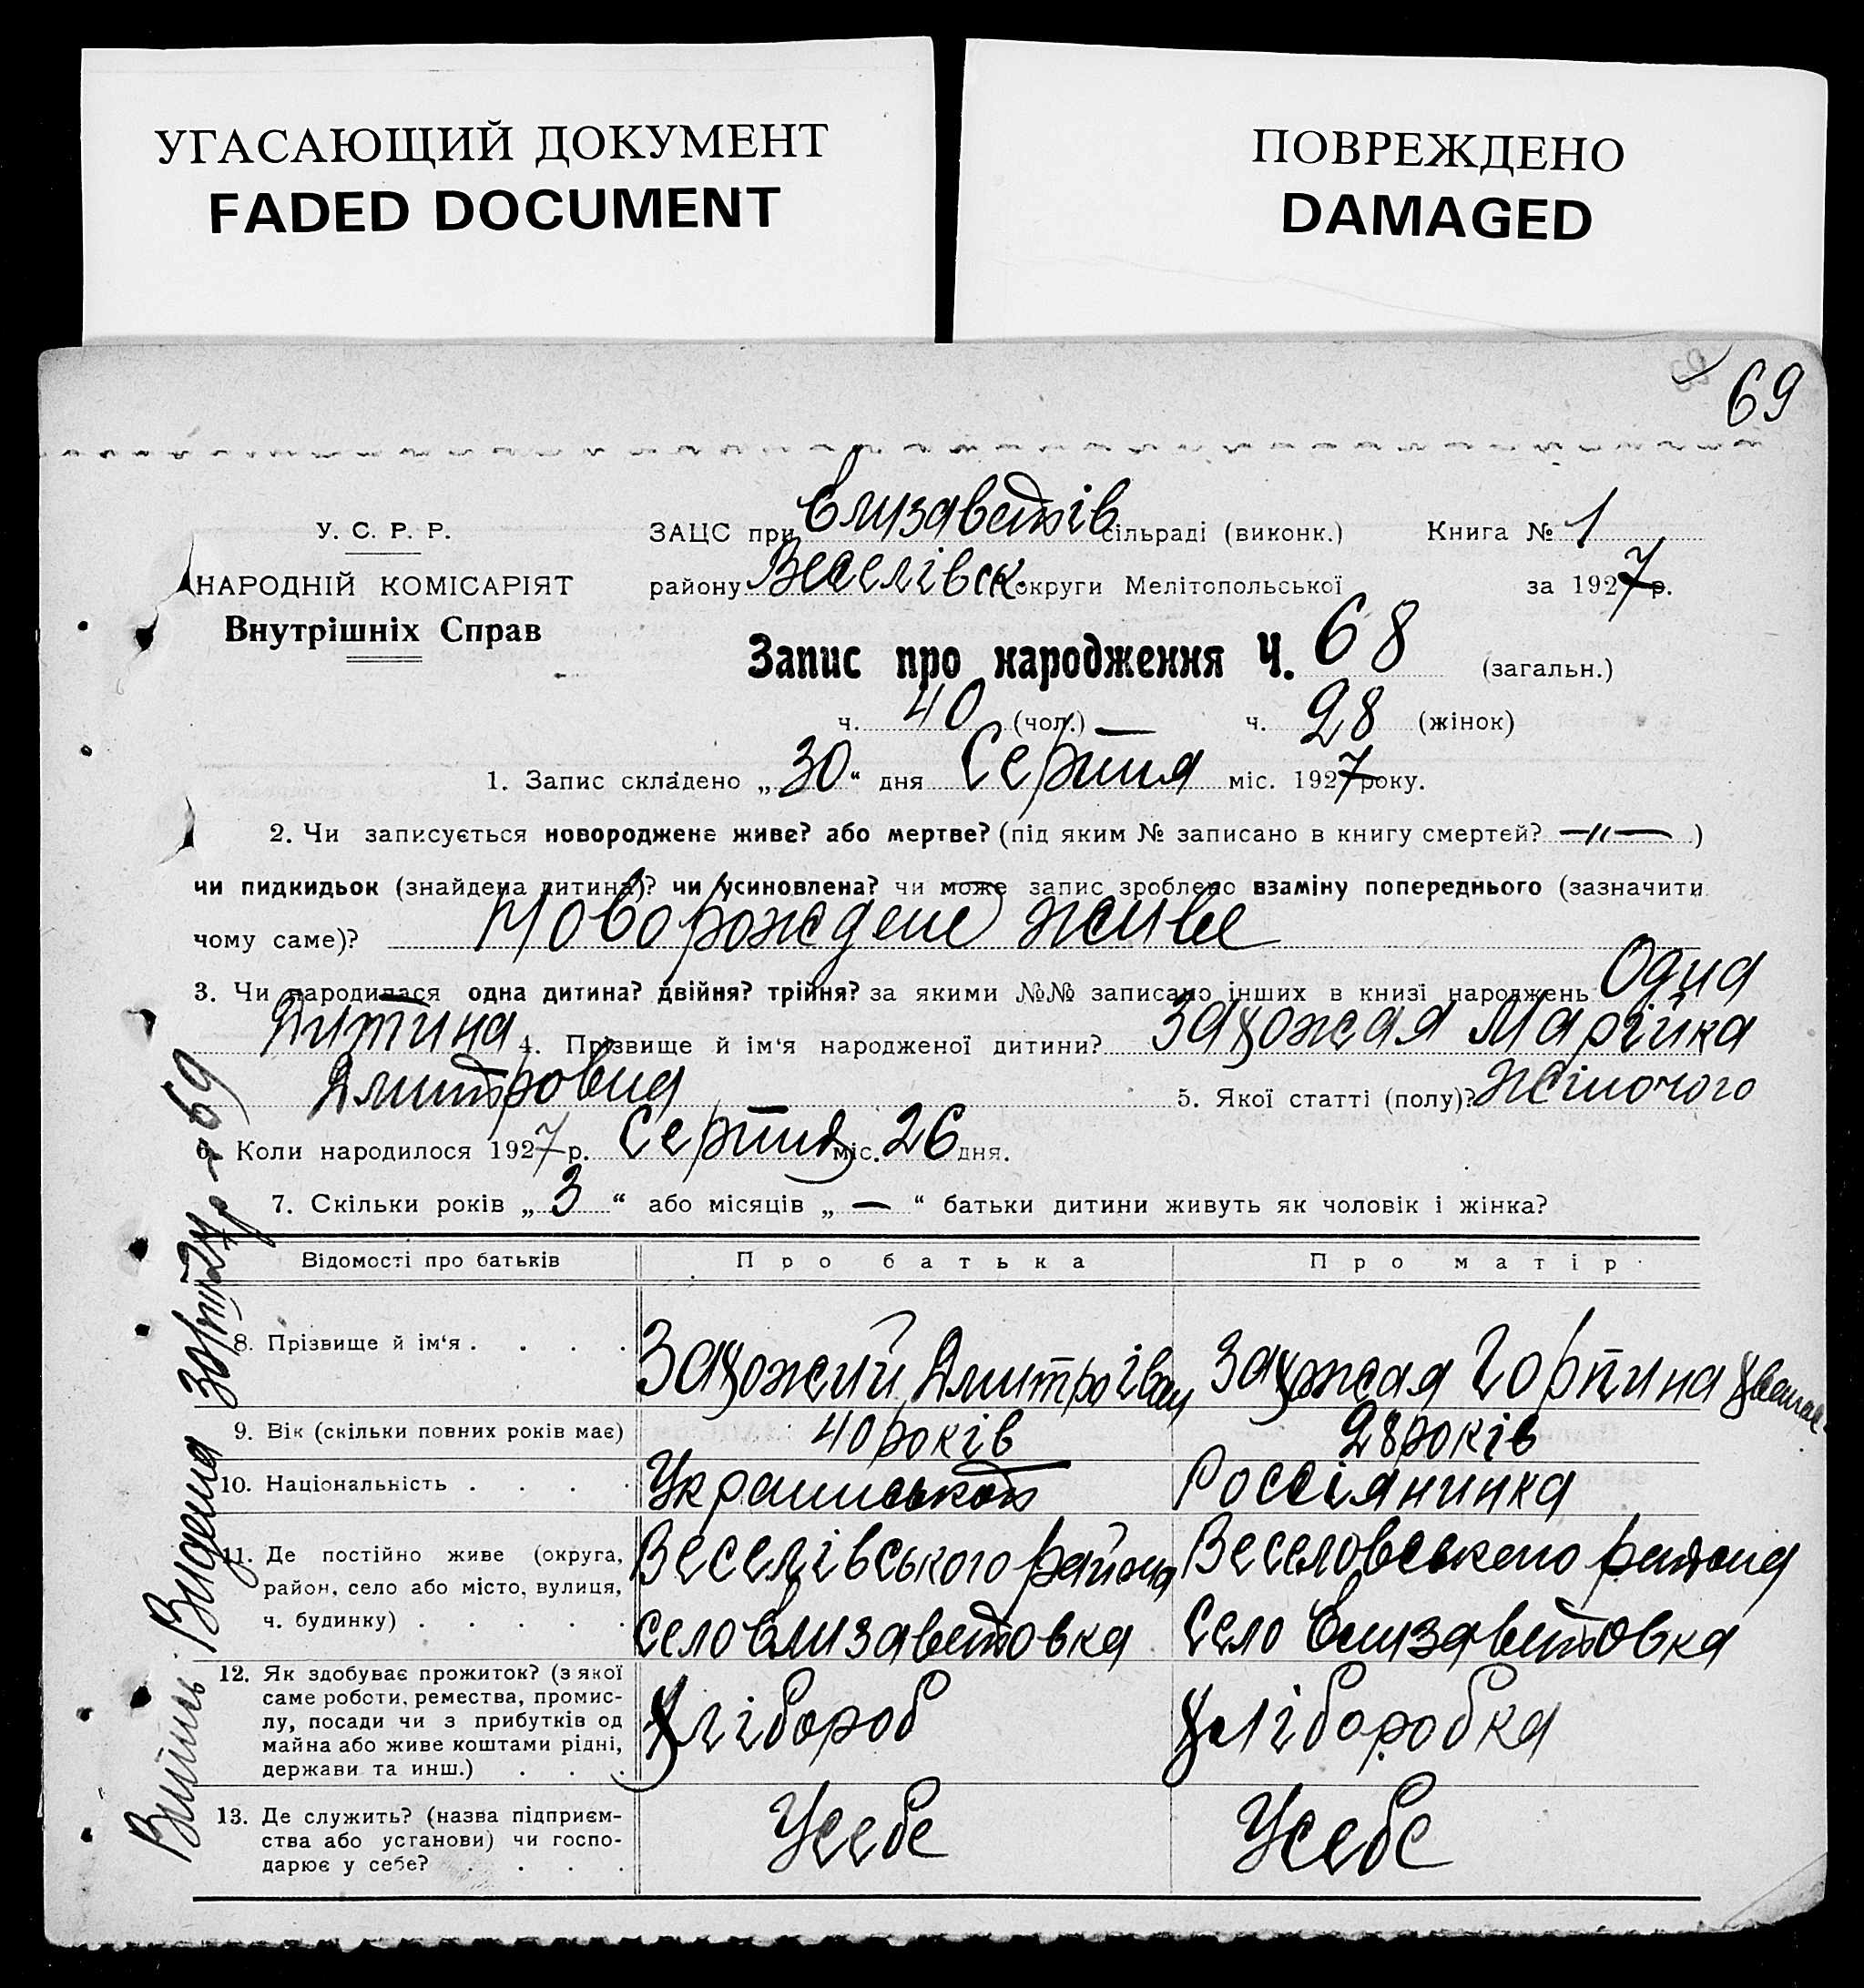 УГАСАЮЩИЙ ДОКУМЕНТ
FADED DOCUMENT
ПОВРЕЖДЕНО
DAMAGED
69
У. С. Р. Р.
НАРОДНІЙ КОМІСАРІЯТ
Внутрішніх Справ
ЗАЦС при Єлизаветів сільраді (виконк.) Книга № 1
району Веселівськ. округи Мелітопольської за 1927 р.
Запис про народження Ч. 68 (загальн.)
ч. 40 (чол.) — ч. 28 (жінок)
1. Запис складено „30“ дня Серпня міс. 1927 року.
2. Чи записується новороджене живе? або мертве? (під яким № записано в книгу смертей? —„— )
чи пидкидьок (знайдена дитина)? чи усиновлена? чи може запис зроблено взаміну попереднього (зазначити
чому саме)? Новорождене живе
3. Чи народилася одна дитина? двійня? трійня? за якими №№ записано інших в книзі народжень Одна
Дитина 4. Прізвище й ім‘я народженої дитини? Захожая Марійка
Дмитровна 5. Якої статті (полу)? жіночого
6. Коли народилося 1927 р. Серпня міс. 26 дня.
7. Скільки років „3“ або місяців „—“ батьки дитини живуть як чоловік і жінка?
Відомості про батьків Про батька Про матір
8. Прізвище й ім‘я . . . . Захожий Дмитро Іван Захожая Горпина
9. Вік (скільки повних років має) 40 років 28 років
10. Національність . . . . Россіянинка
11. Де постійно живе (округа, район, село або місто, вулиця, ч. будинку) . . . . .
Веселівського района Веселовського района
село Єлизаветовка село Єлизаветовка
12. Як здобуває прожиток? (з якої
саме роботи, ремества, промис-
лу, посади чи з прибутків од
майна або живе коштами рідні,
держави та инш.) . . .
Хлібороб Хліборобка
13. Де служить? (назва підприєм-
ства або установи) чи госпо-
дарює у себе? . . . .
У себе У себе
Видена 69